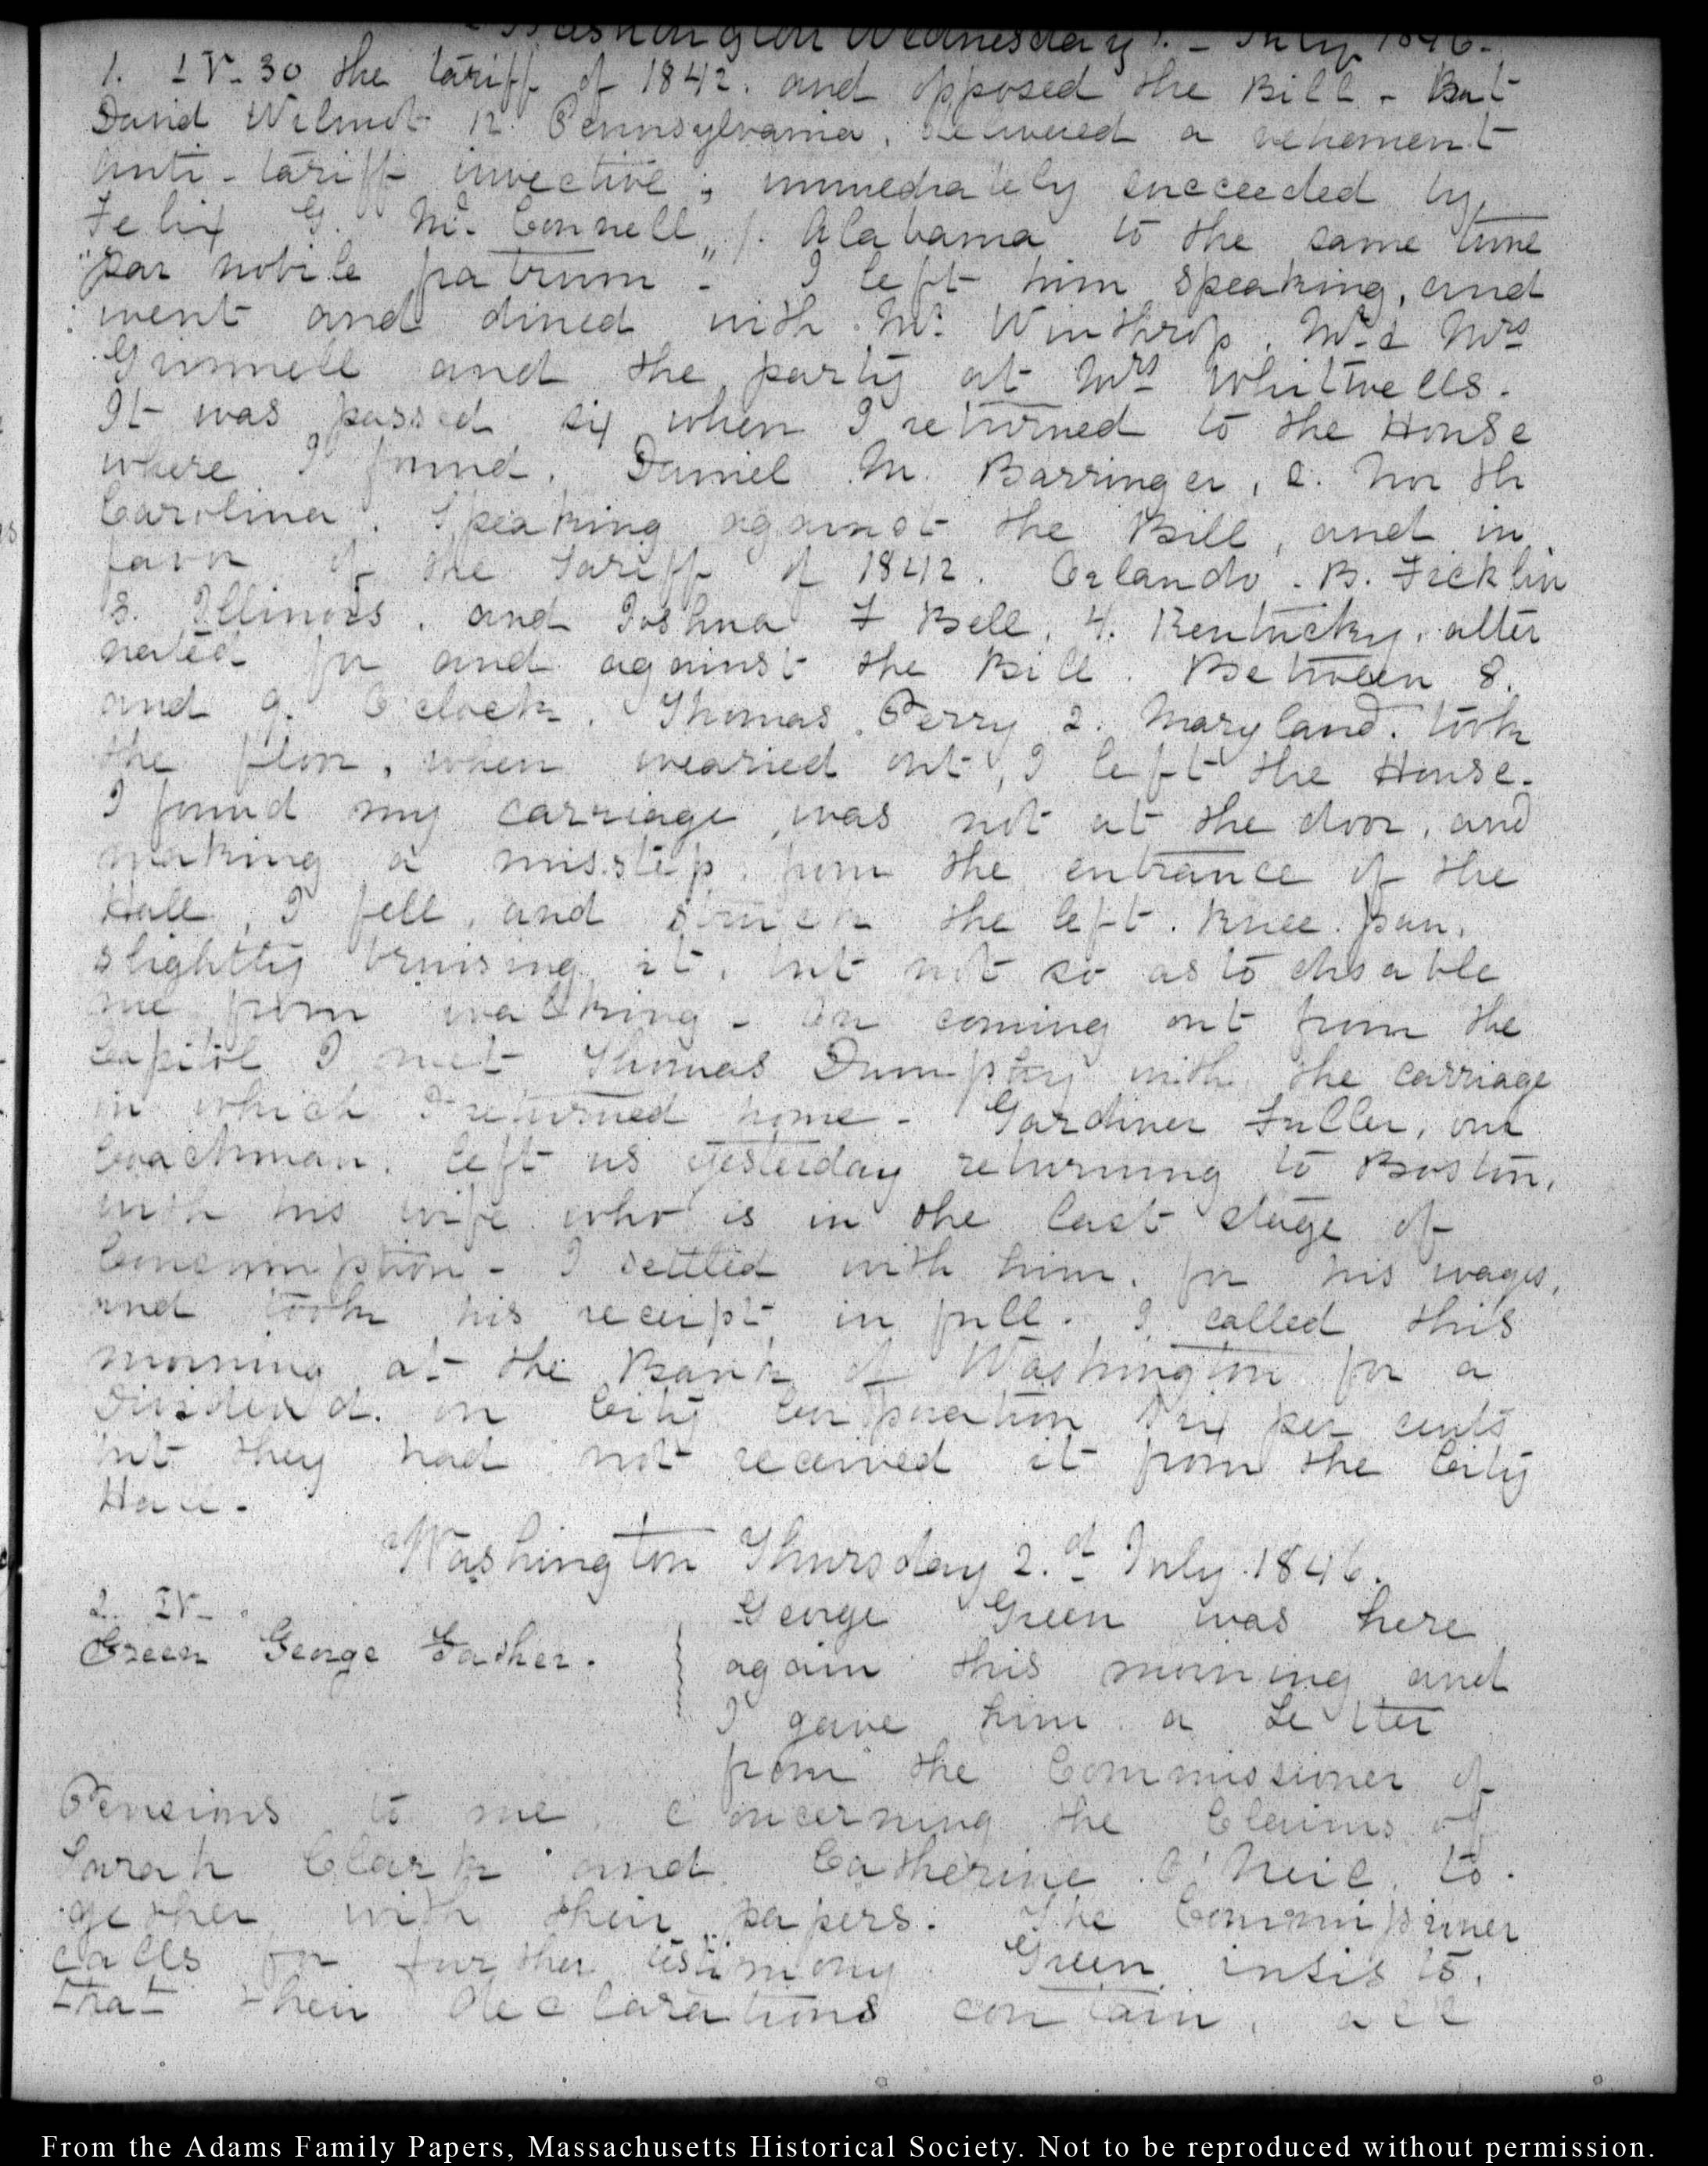 Washington Wednesday 1. – July 1846.
1. IV–30 the tariff of 1842. and opposed the Bill – But
David Wilmot 12 Pennsylvania, delivered a vehement
anti-tariff invective; immediately succeeded by
Felix G. Mc. Connell, 7. Alabama to the same tune
"par nobile fratrum" – I left him speaking, and
went and dined with Mr. Winthrop, Mr. & Mrs
Grinnell and the party at Mrs Whitwells.
It was passed six when I returned to the House
where I found, Daniel M. Barringer, 2. North
Carolina. Speaking against the Bill, and in
favor of the Tariff of 1842. Orlando. B. Ficklin
3. Illinois, and Joshua F Bell, 4. Kentucky, alter
nated for and against the Bill. Between 8.
and 9. O'clock. Thomas Perry 2. Maryland. took
the floor, when wearied out, I left the House.
I found my carriage was not at the door, and
making a misstep from the entrance of the
Hall, I fell, and struck the left. knee. pan,
slightly bruising it, but not so as to disable
me from walking – On coming out from the
Capitol I met Thomas Dumphy with the carriage
in which I returned home – Gardiner Fuller, our
Coachman. left us yesterday returning to Boston,
with his wife who is in the last stage of
Consumption – I settled with him. for his wages,
and took his receipt in full. I called this
morning at the Bank of Washington for a
Dividend. on City Corporation Six per cents
but they had not received it from the City
Hall –
Washington Thursday 2.d July 1846.
2. IV–
Green George Father.
George Green was here
again this morning and
I gave him a Letter
from the Commissioner of
Pensions to me. concerning the Claims of
Sarah Clark and Catherine O'Neil, to.
gether with their papers. The Commissioner
calls for further testimony Green insists,
that their declarations contain, all